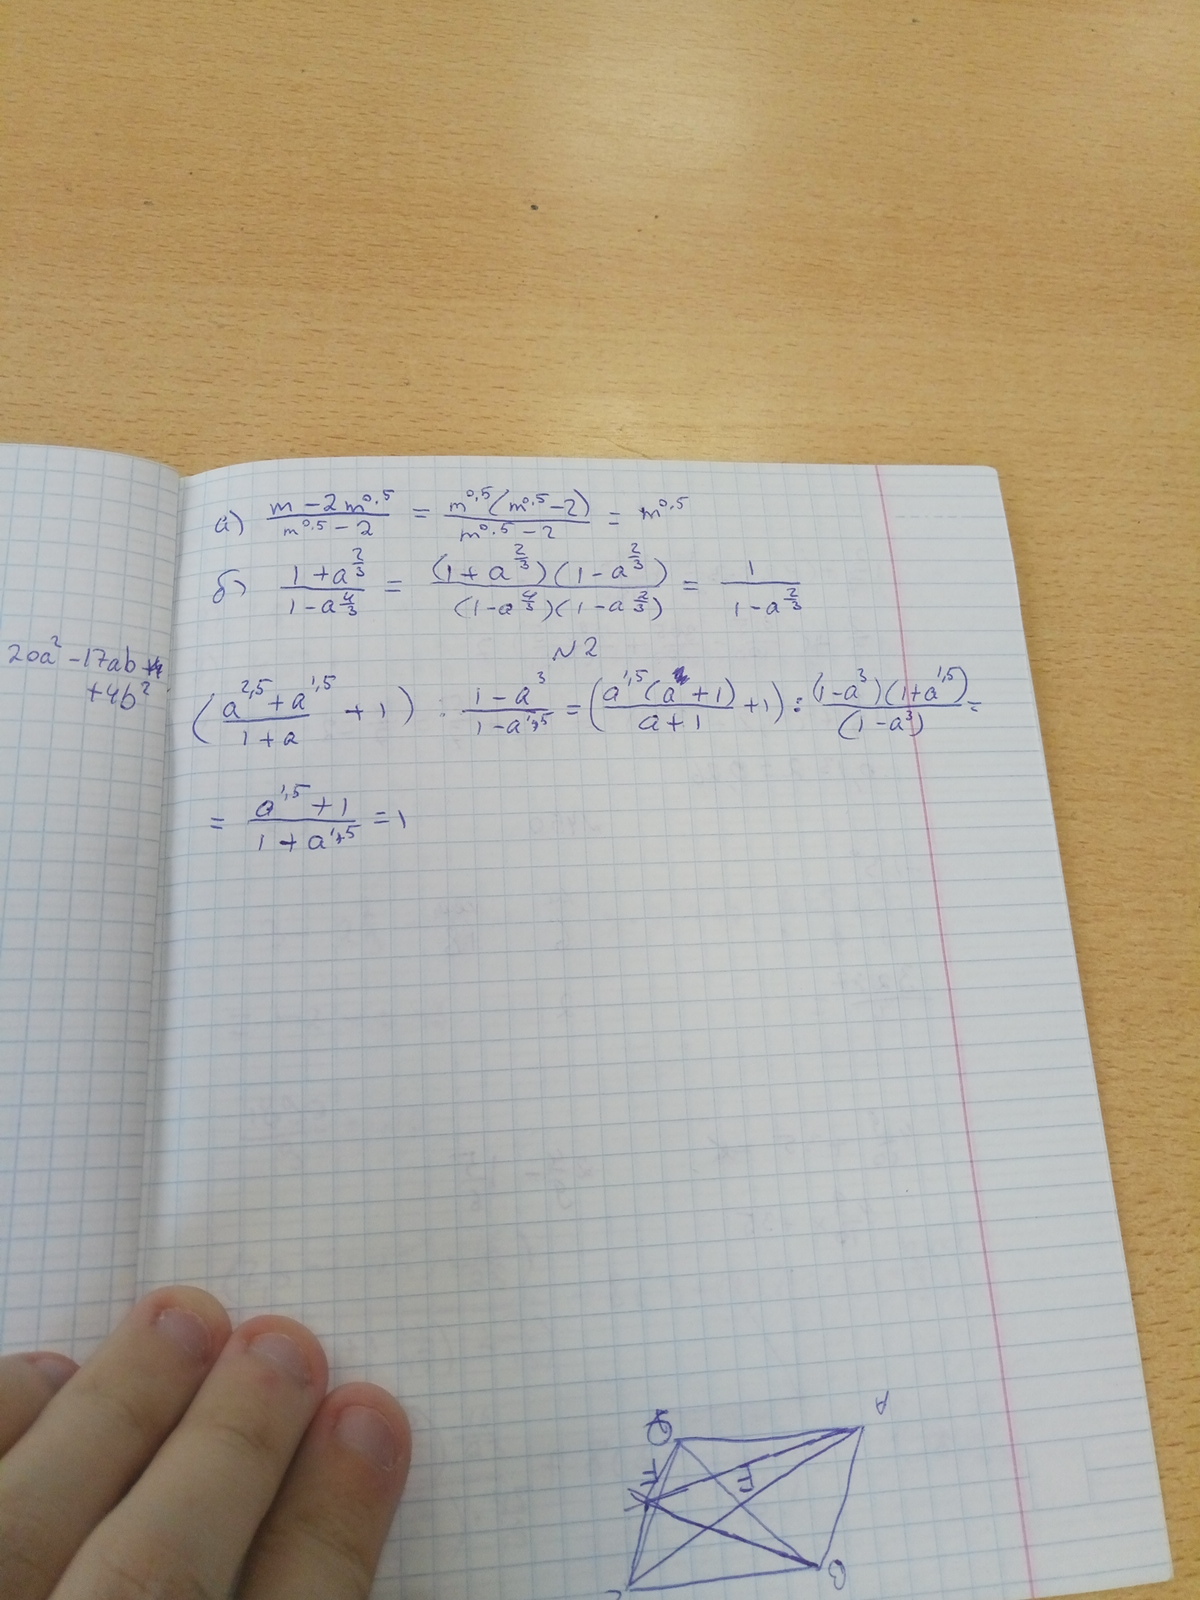 а) (m - 2m^0,5)/(m^0,5 - 2) = (m^0,5(m^0,5 - 2))/(m^0,5 - 2) = m^0,5
б) (1 + a^(2/3))/(1 - a^(4/3)) = ((1 + a^(2/3))(1 - a^(2/3)))/((1 - a^(4/3))(1 - a^(2/3))) = 1/(1 - a^(2/3))
20a² - 17ab +
+4b²
N2
((a^2,5 + a^1,5)/(1 + a) + 1) : (1 - a³)/(1 - a^1,5) = ((a^1,5(a + 1))/(a + 1) + 1) : ((1 - a³)(1 + a^1,5))/(1 - a³) =
= (a^1,5 + 1)/(1 + a^1,5) = 1
A
F
B